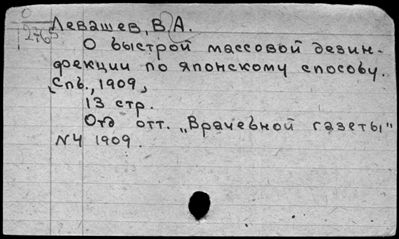 0
2765
Левашев, В. А.
О выстрой массовой дезин-
фекции по японскому способу.
Спб., 1909,
13 стр.
Отд отт. „Врачебной газеты"
N4 1909.